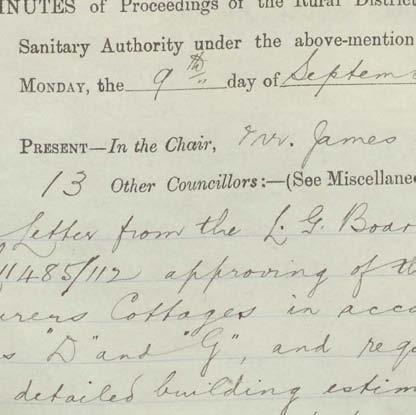 MINUTES of Proceedings of the Rural District
Sanitary Authority under the above-mention
MONDAY, the 9th day of Septem
PRESENT—In the Chair, Mr. James
13 Other Councillors:—(See Miscellane
Letter from the L. G. Boar
11485/112 approving of th
urers Cottages in acco
s "D" and "G", and requ
detailed building estim